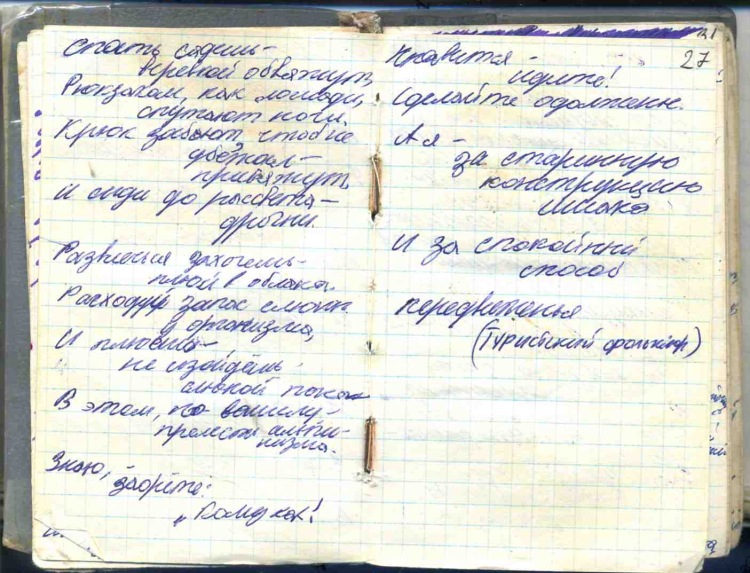 спать садишь-
веревкой обвяжут,
Рюкзаком, как лошади,
спутают ноги.
Крюк забьют, чтоб не
убежал-
привяжут,
И сиди до рассвета-
дрогни.
Развлечься захочешь-
плюй в облака.
Расходуй запас слюны
в организма,
И плюешь-
не изойдешь
слюной пока
В этом, по вашему-
прелесть альпи-
низма.
Знаю, -
заорете:
"Романтика!
Нравится -
идите!
Сделайте одолжение.
А я -
за старинную
конструкцию
ишака
И за спокойный
способ
передвиженья
(Туристский фольклор)
27